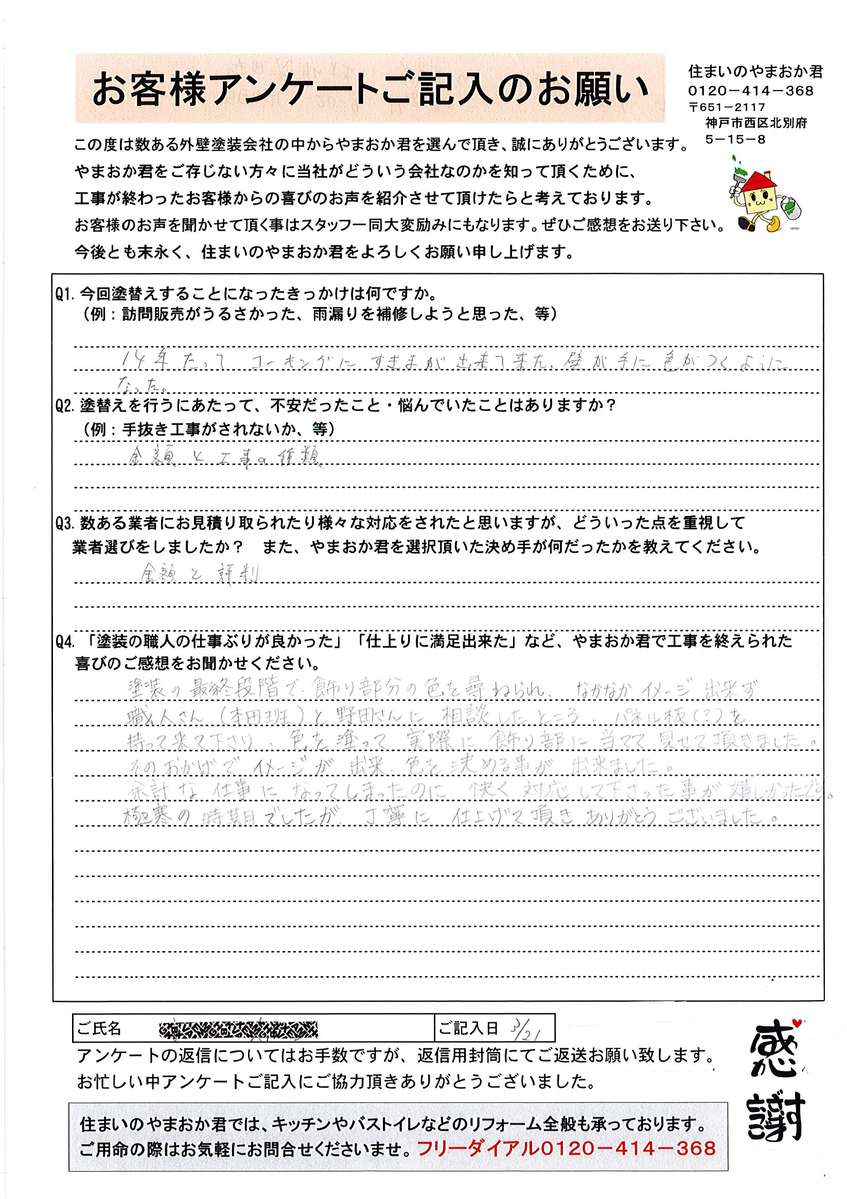 お客様アンケートご記入のお願い
住まいのやまおか君
0120－414－368
〒651－2117
神戸市西区北別府
5－15－8
この度は数ある外壁塗装会社の中からやまおか君を選んで頂き、誠にありがとうございます。
やまおか君をご存じない方々に当社がどういう会社なのかを知って頂くために、
工事が終わったお客様からの喜びのお声を紹介させて頂けたらと考えております。
お客様のお声を聞かせて頂く事はスタッフ一同大変励みにもなります。ぜひご感想をお送り下さい。
今後とも末永く、住まいのやまおか君をよろしくお願い申し上げます。
Q1. 今回塗替えすることになったきっかけは何ですか。
（例：訪問販売がうるさかった、雨漏りを補修しようと思った、等）
14年たって コーキングに すきまが出来て来た。壁が手に色がつくように
なった。
Q2. 塗替えを行うにあたって、不安だったこと・悩んでいたことはありますか？
（例：手抜き工事がされないか、等）
金額と工事の種類
Q3. 数ある業者にお見積り取られたり様々な対応をされたと思いますが、どういった点を重視して
業者選びをしましたか？ また、やまおか君を選択頂いた決め手が何だったかを教えてください。
金額と評判
Q4. 「塗装の職人の仕事ぶりが良かった」「仕上りに満足出来た」など、やまおか君で工事を終えられた
喜びのご感想をお聞かせください。
塗装の最終段階で、飾り部分の色を尋ねられ、なかなかイメージ出来ず
職人さん（本田班）と野田さんに相談したところ、パネル板（？）を
持って来て下さり、色を塗って実際に飾り部に当てて見せて頂きました。
そのおかげでイメージが出来、色を決める事が出来ました。
余計な仕事になってしまったのに快く対応して下さった事が嬉しかったです。
極寒の時期でしたが、丁寧に仕上げて頂きありがとうございました。
ご氏名
ご記入日 3/21
アンケートの返信についてはお手数ですが、返信用封筒にてご返送お願い致します。
お忙しい中アンケートご記入にご協力頂きありがとうございました。
感謝
住まいのやまおか君では、キッチンやバストイレなどのリフォーム全般も承っております。
ご用命の際はお気軽にお問合せくださいませ。フリーダイアル0120－414－368